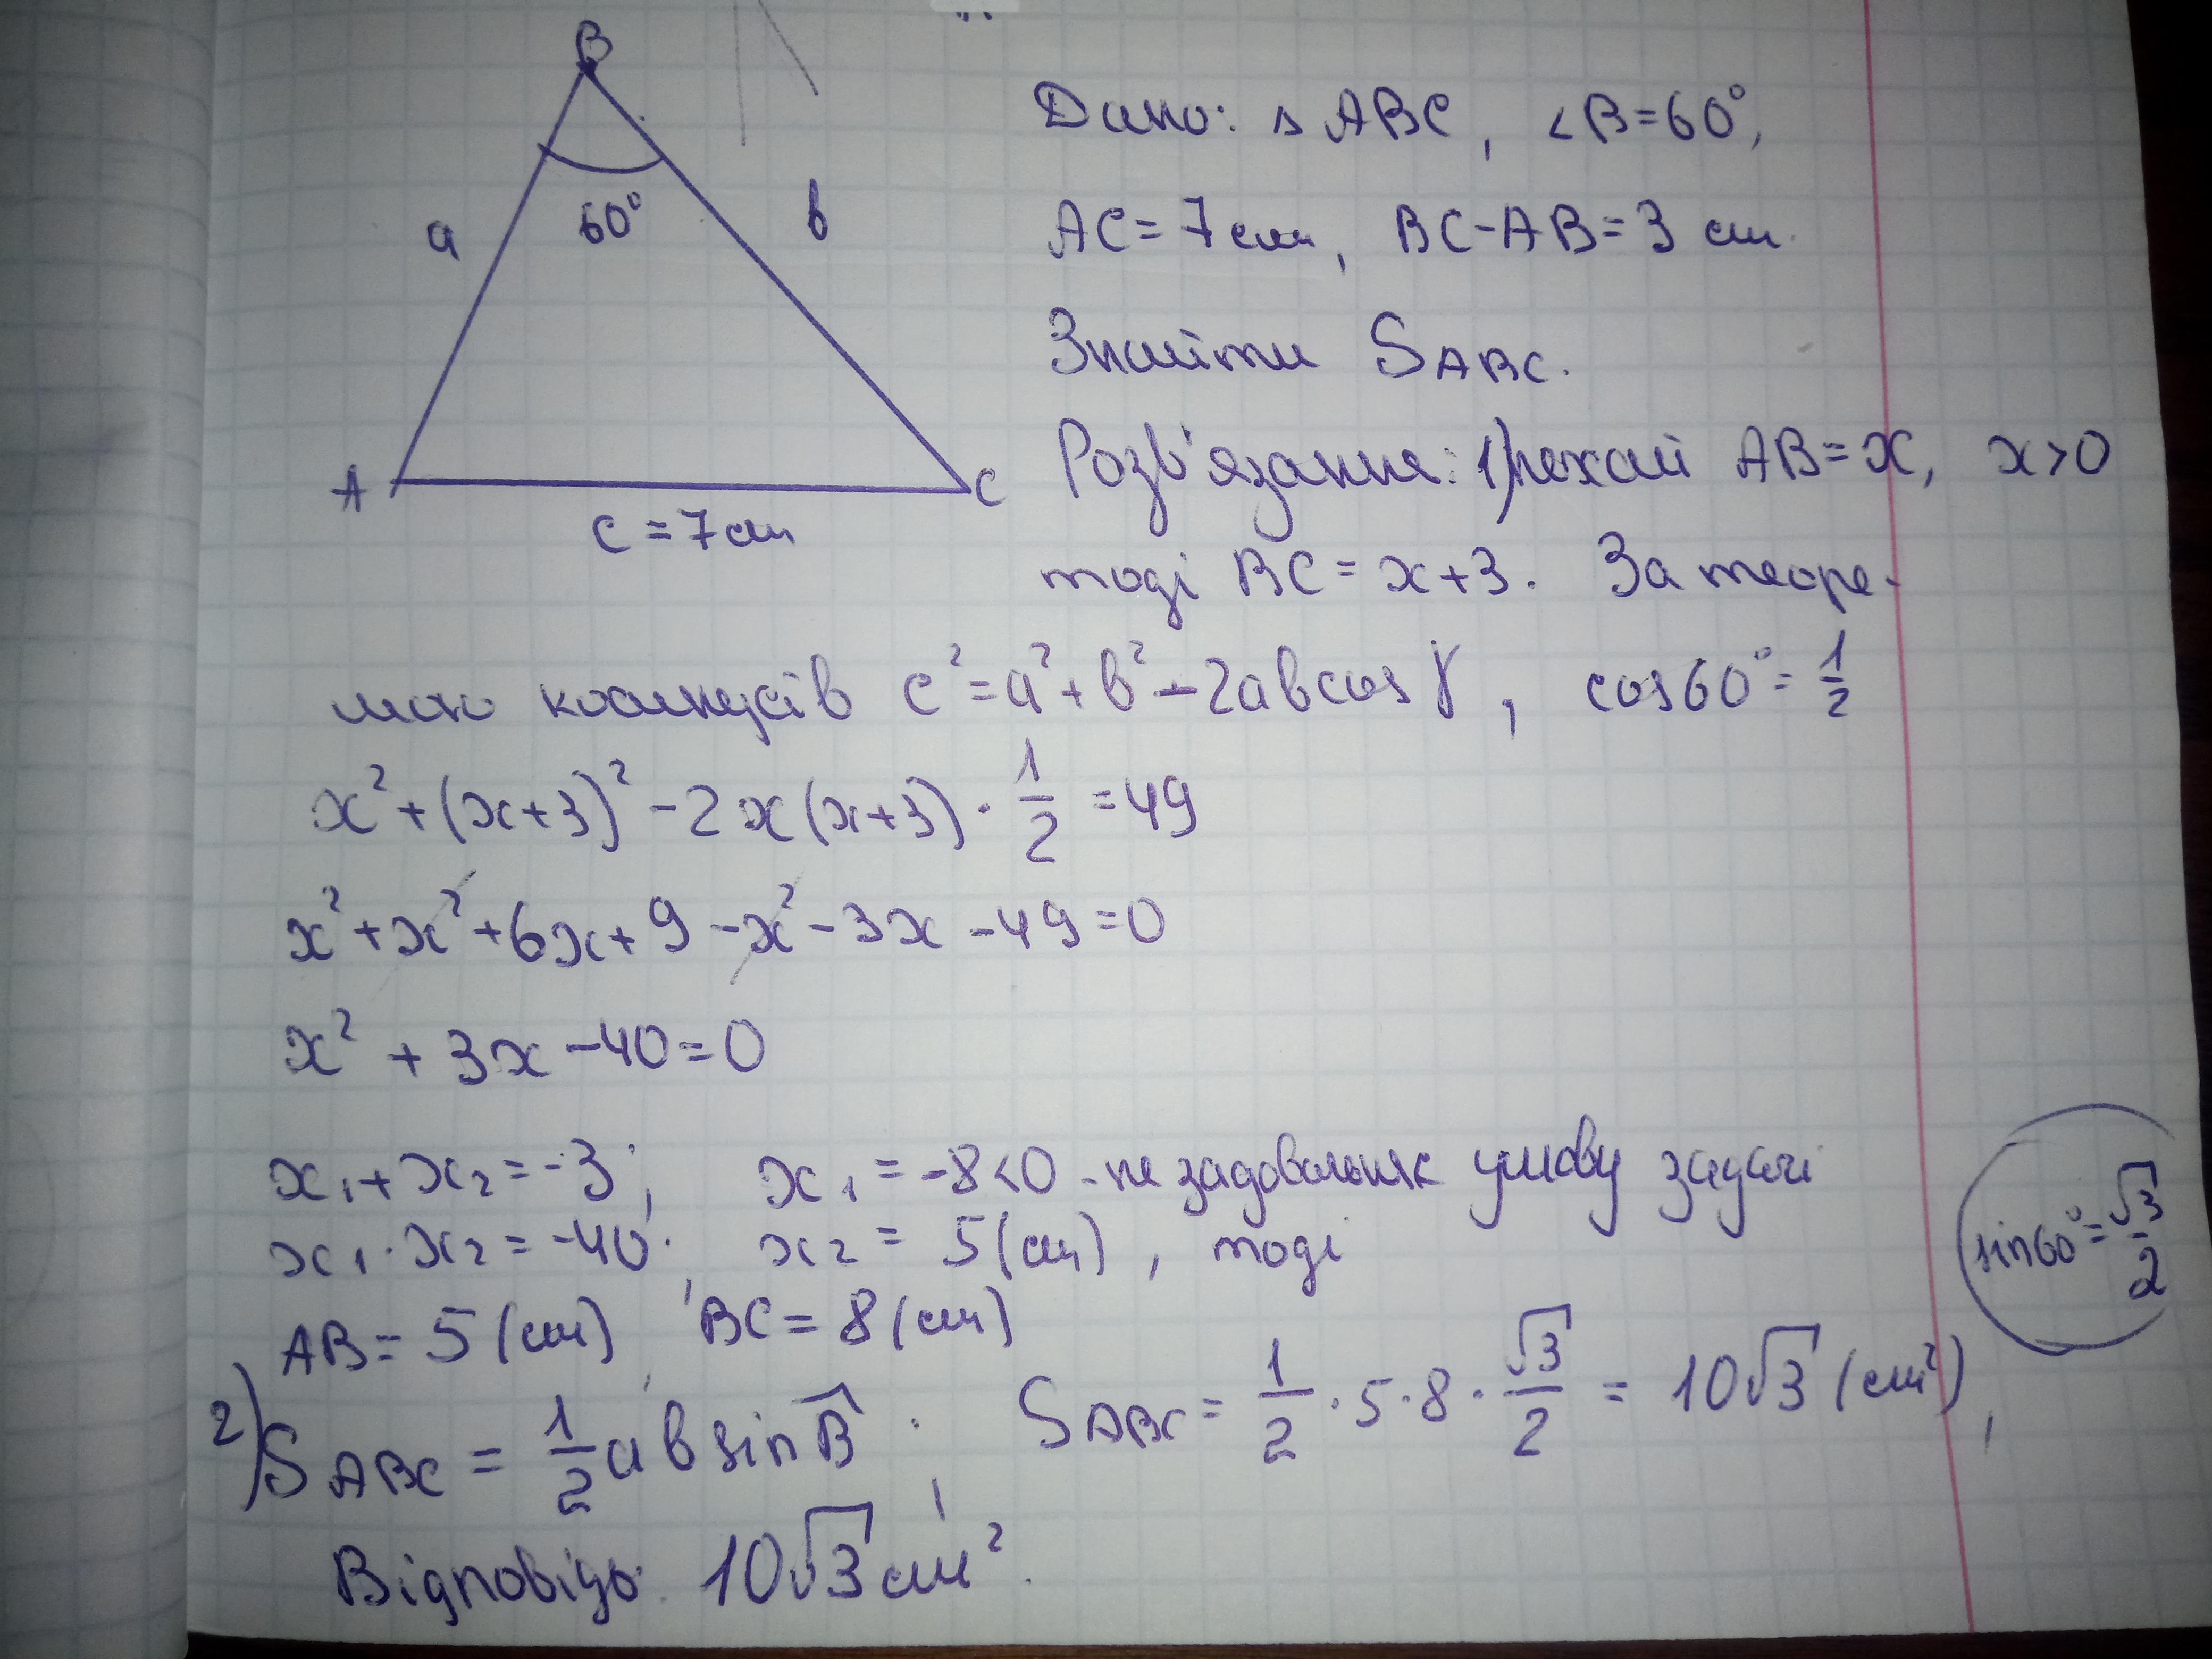 B
a
60°
b
A
C
c = 7 см
Дано: △ ABC, ∠B=60°,
AC = 7 см, BC-AB=3 см.
Знайти S ABC.
Розв'язання: 1) нехай AB = x, x>0
тоді BC = x+3. За теоре-
мою косинусів c² = a² + b² - 2ab cos γ, cos 60° = 1/2
x² + (x+3)² - 2x(x+3) · 1/2 = 49
x² + x² + 6x + 9 - x² - 3x - 49 = 0
x² + 3x - 40 = 0
x₁ + x₂ = -3; x₁ = -8 < 0 - не задовольняє умову задачі
x₁ · x₂ = -40; x₂ = 5 (см), тоді
sin 60° = √3/2
AB = 5 (см), BC = 8 (см)
2) S ABC = 1/2 ab sin B̂; S ABC = 1/2 · 5 · 8 · √3/2 = 10√3 (см²),
Відповідь: 10√3 см².